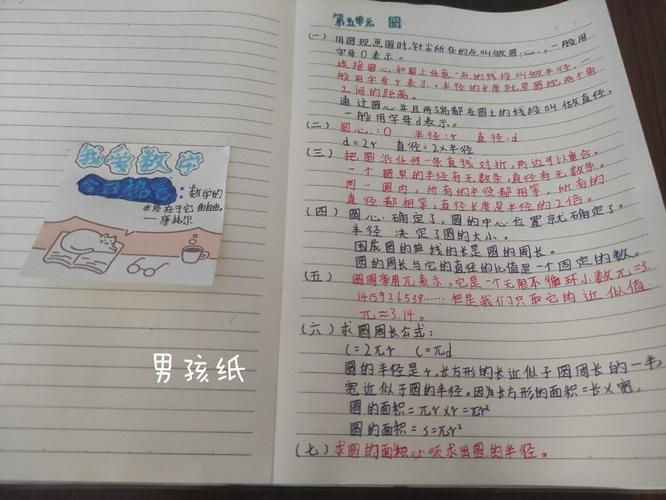 我爱数学
今日格言:数学的
本质在于它的自由。
—康托尔
男孩纸
第五单元 圆
(一) 用圆规画圆时,针尖所在的点叫做圆心,一般用
字母O表示。
连接圆心和圆上任意一点的线段叫做半径,一
般用字母r表示,半径的长度就是圆规两个脚
之间的距离。
通过圆心并且两端都在圆上的线段叫做直径,
一般用字母d表示。
(二) 圆心:O 半径:r 直径:d
d=2r 直径=2×半径
(三) 把圆沿任何一条直线对折,两边可以重合。
一个圆里的半径有无数条,直径有无数条。
同一圆内,所有的半径都相等,所有的
直径都相等,直径长度是半径的2倍。
(四) 圆心确定了,圆的中心位置就确定了。
半径 决定了圆的大小。
围成圆的曲线的长是圆的周长。
圆的周长与它的直径的比值是一个固定的数。
(五) 圆周率用π表示,它是一个无限不循环小数π≈3.
1415926538……但是我们只取它的近似值
π≈3.14。
(六) 求圆周长公式:
C=2πr C=πd
圆的半径是r,长方形的长近似于圆周长的一半,
宽近似于圆的半径。因为长方形的面积=长×宽,
圆的面积=πr×r=πr²
圆的面积=S=πr²
(七) 求圆的面积必须求出圆的半径。